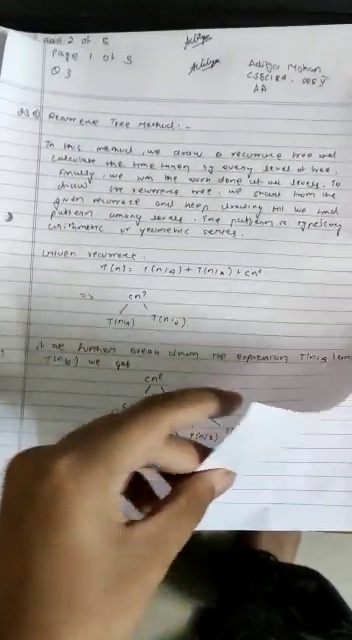 Page 1 of 5
Q 3
Aditya Mohan
AA
Recurrence Tree Method:-
In this method, we draw a recurrence tree and
calculate the time taken by every level of tree.
Finally, we sum the work done at all levels. To
draw the recurrence tree, we start from the
given recurrence and keep drawing till we find
pattern among levels. The pattern is typically
arithmetic or geometric series.
Given recurrence:
T(n) = T(n/4) + T(n/2) + cn²
=> cn²
T(n/4) T(n/2)
If we further break down the expression T(n/4) and
T(n/2) we get
cn²
T(n/8)